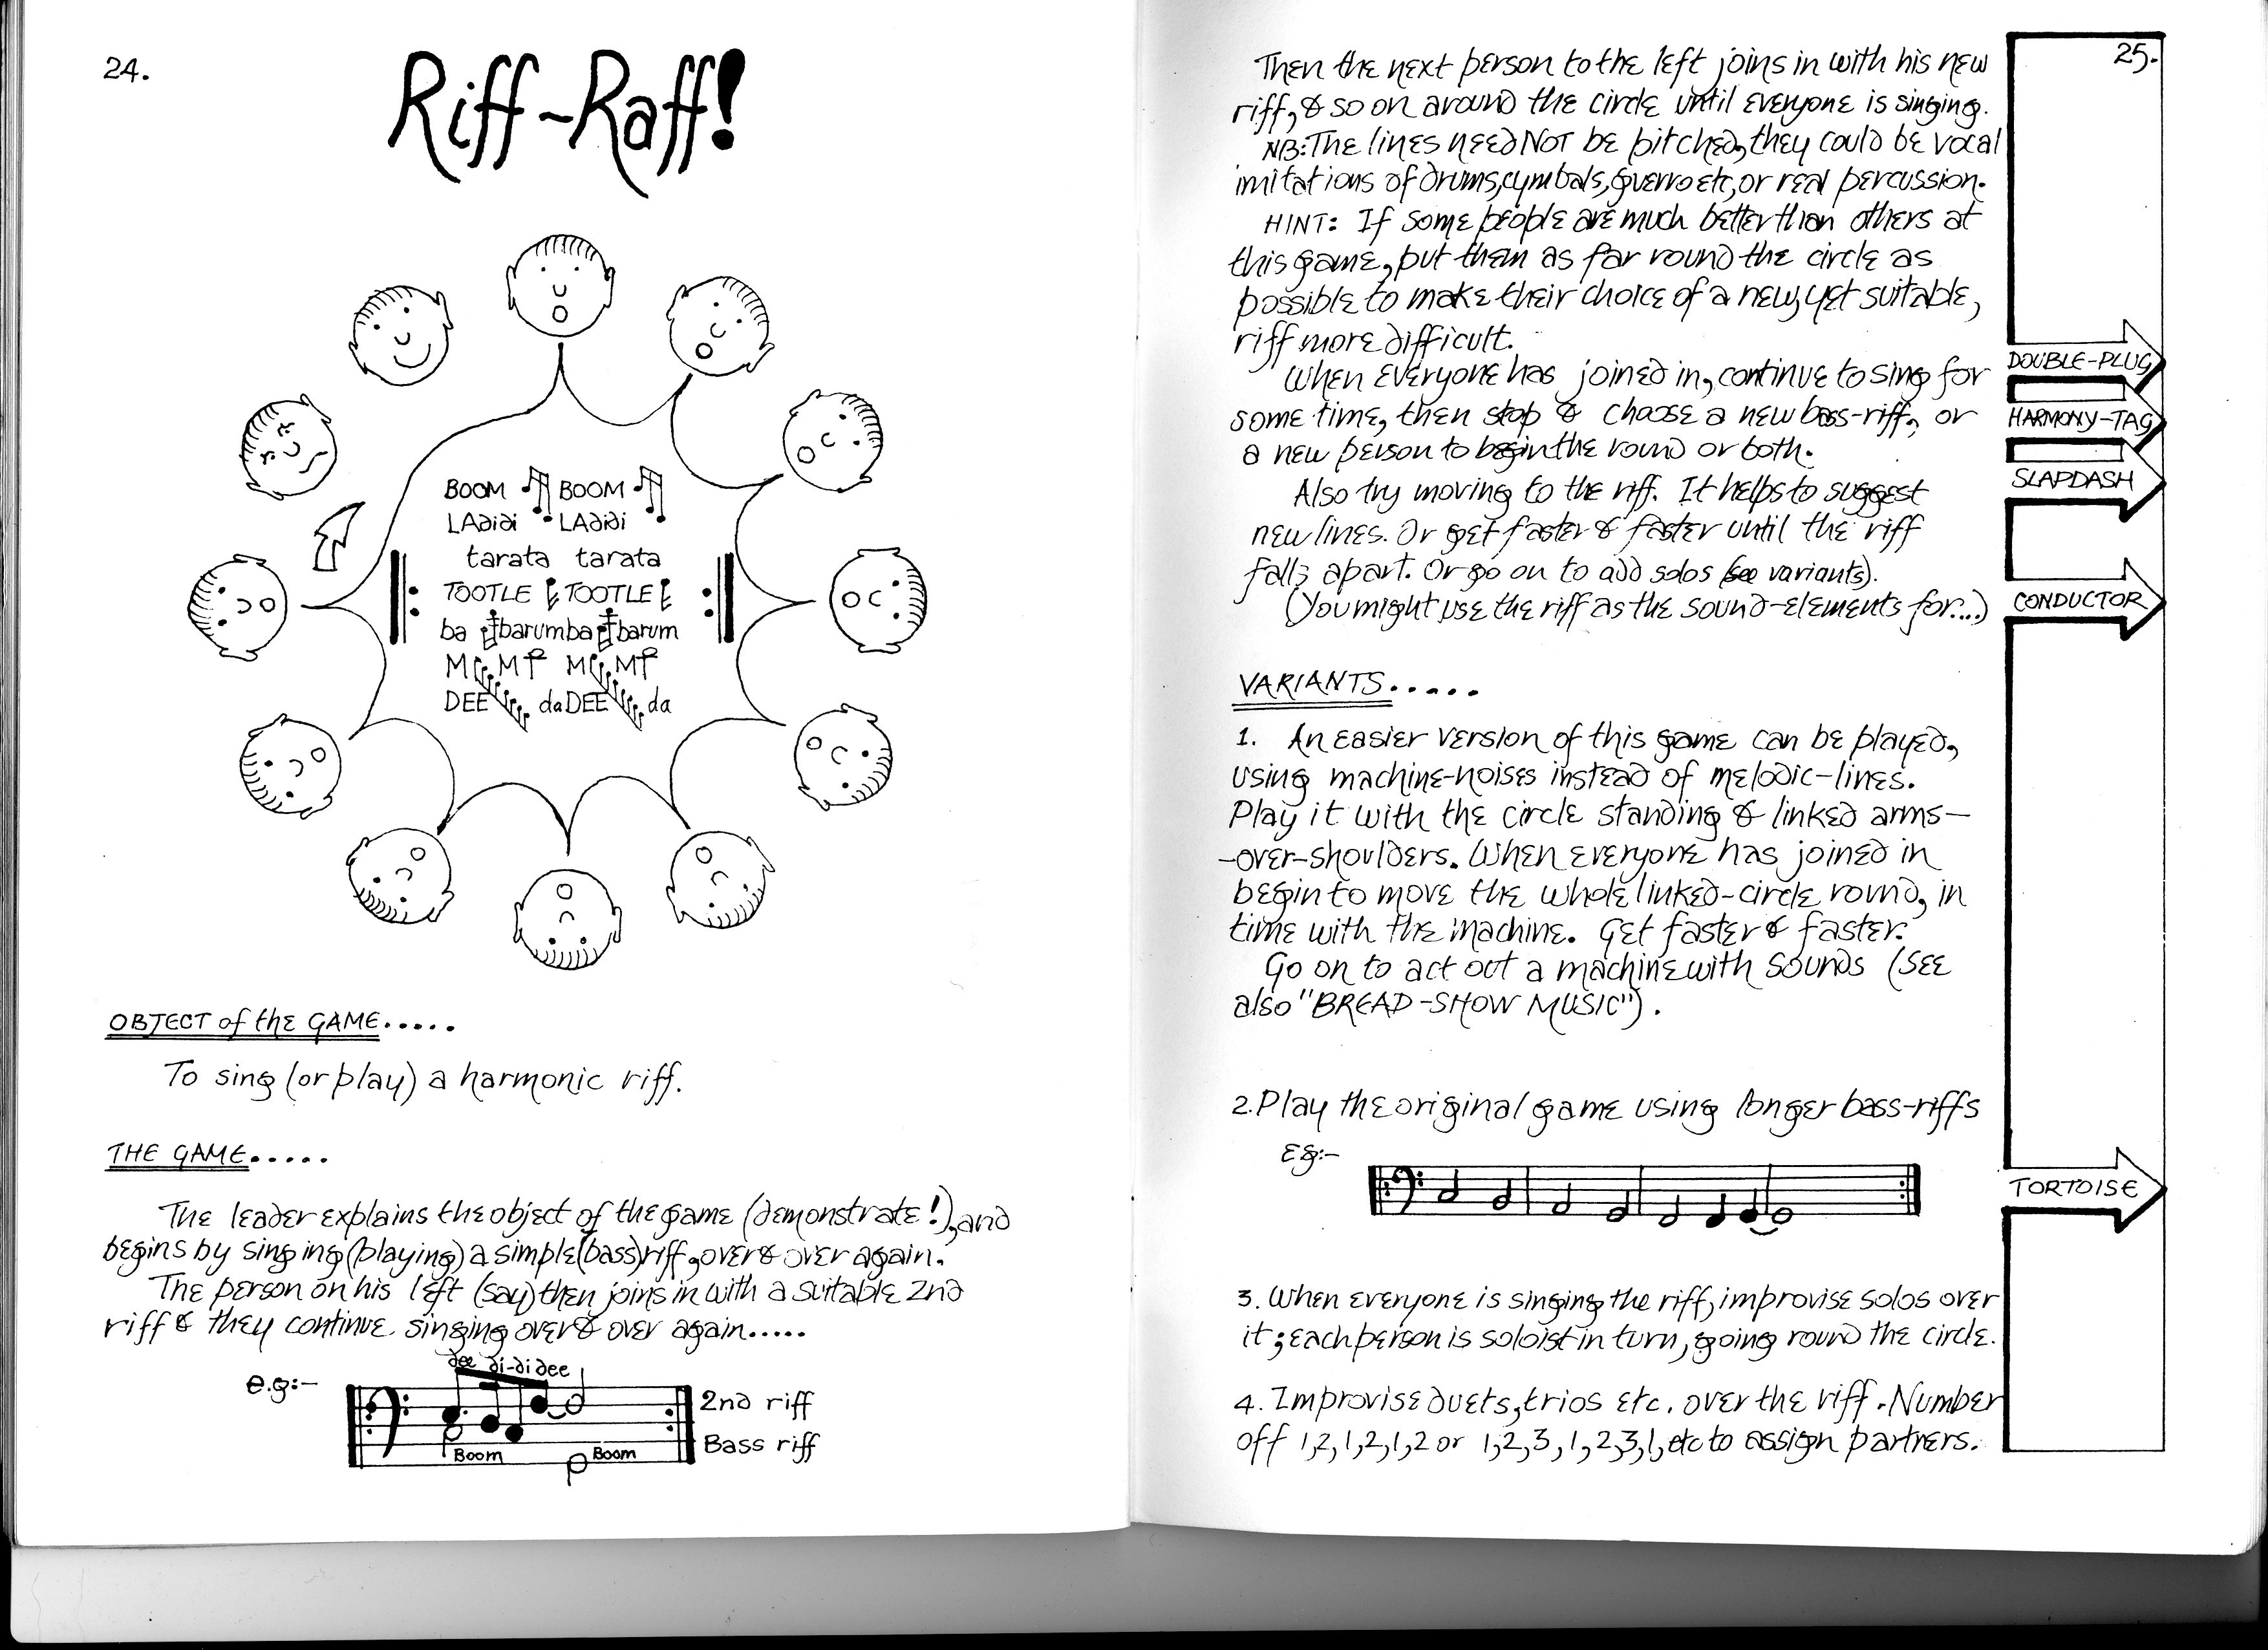 24.
Riff-Raff!
BOOM BOOM
LAdidi LAdidi
tarata tarata
TOOTLE TOOTLE
ba barumba barum
DEE da DEE da
OBJECT of the GAME.....
To sing (or play) a harmonic riff.
THE GAME.....
The leader explains the object of the game (demonstrate!), and
begins by singing (playing) a simple (bass) riff, over & over again.
The person on his left (say) then joins in with a suitable 2nd
riff & they continue singing over & over again.....
e.g:-
dee di-di dee
2nd riff
Boom Boom
Bass riff
25.
Then the next person to the left joins in with his new
riff, & so on around the circle until everyone is singing.
NB: The lines need NOT be pitched, they could be vocal
imitations of drums, cymbals, guerro etc, or real percussion.
HINT: If some people are much better than others at
this game, put them as far round the circle as
possible to make their choice of a new, yet suitable,
riff more difficult.
When everyone has joined in, continue to sing for
some time, then stop & choose a new bass-riff, or
a new person to begin the round or both.
Also try moving to the riff. It helps to suggest
new lines. Or get faster & faster until the riff
falls apart. Or go on to add solos (see variants).
(You might use the riff as the sound-elements for....)
VARIANTS.....
1. An easier version of this game can be played,
using machine-noises instead of melodic-lines.
Play it with the circle standing & linked arms-
-over-shoulders. When everyone has joined in
begin to move the whole linked-circle round, in
time with the machine. Get faster & faster.
Go on to act out a machine with sounds (see
also "BREAD-SHOW MUSIC").
2. Play the original game using longer bass-riffs
Eg:-
3. When everyone is singing the riff, improvise solos over
it; each person is soloist in turn, going round the circle.
4. Improvise duets, trios etc. over the riff. Number
off 1,2,1,2,1,2 or 1,2,3,1,2,3,1, etc to assign partners.
DOUBLE-PLUG
HARMONY-TAG
SLAPDASH
CONDUCTOR
TORTOISE